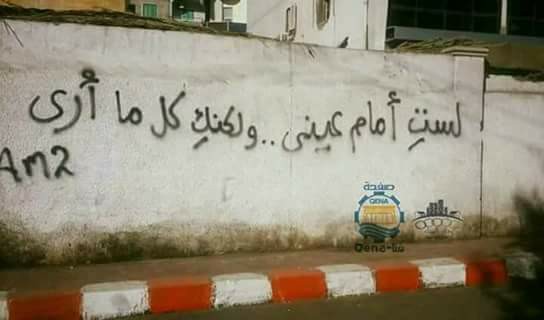 لستِ أمام عيني .. ولكنكِ كل ما أرى
Am2
صفحة
QENA
Qena-قنا